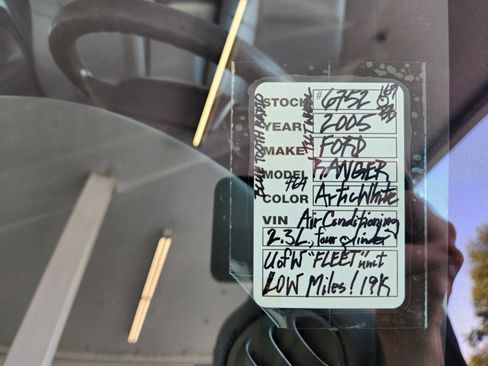 STOCK #6752
YEAR 2005
MAKE FORD
MODEL RANGER
COLOR ArticWhite
VIN Air Conditioning
2.3L, four cylinder
UofW "FLEET" unit
LOW Miles! 19K
BLUE TOOTH RADIO
TILT WHEEL